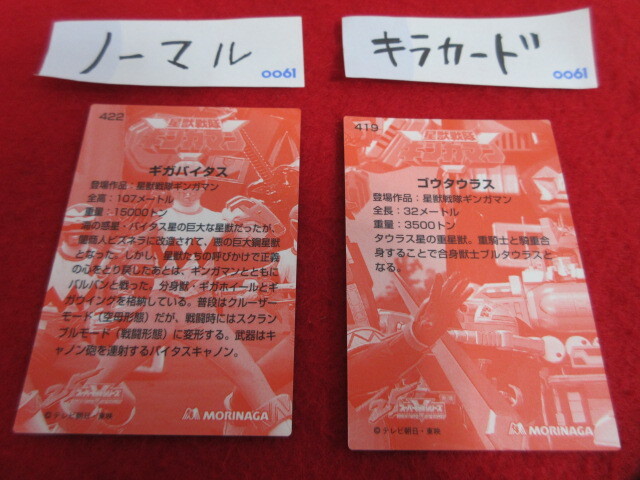 ノーマル
0061
キラカード
0061
422
星獣戦隊
ギンガマン
ギガバイタス
登場作品：星獣戦隊ギンガマン
全高：107メートル
重量：15000トン
海の惑星・バイタス星の巨大な星獣だったが、
闇商人ビズネラに改造されて、悪の巨大鋼星獣
となった。しかし、星獣たちの呼びかけで正義
の心をとり戻したあとは、ギンガマンとともに
バルバンと戦った。分身獣・ギガホイールとギ
ガウイングを格納している。普段はクルーザー
モード（空母形態）だが、戦闘時にはスクラン
ブルモード（戦闘形態）に変形する。武器はキ
ャノン砲を連射するバイタスキャノン。
スーパー戦隊シリーズ
©テレビ朝日・東映
MORINAGA
419
星獣戦隊
ギンガマン
ゴウタウラス
登場作品：星獣戦隊ギンガマン
全長：32メートル
重量：3500トン
タウラス星の重星獣。重騎士と騎重合
身することで合身獣士ブルタウラスと
なる。
スーパー戦隊シリーズ
©テレビ朝日・東映
MORINAGA